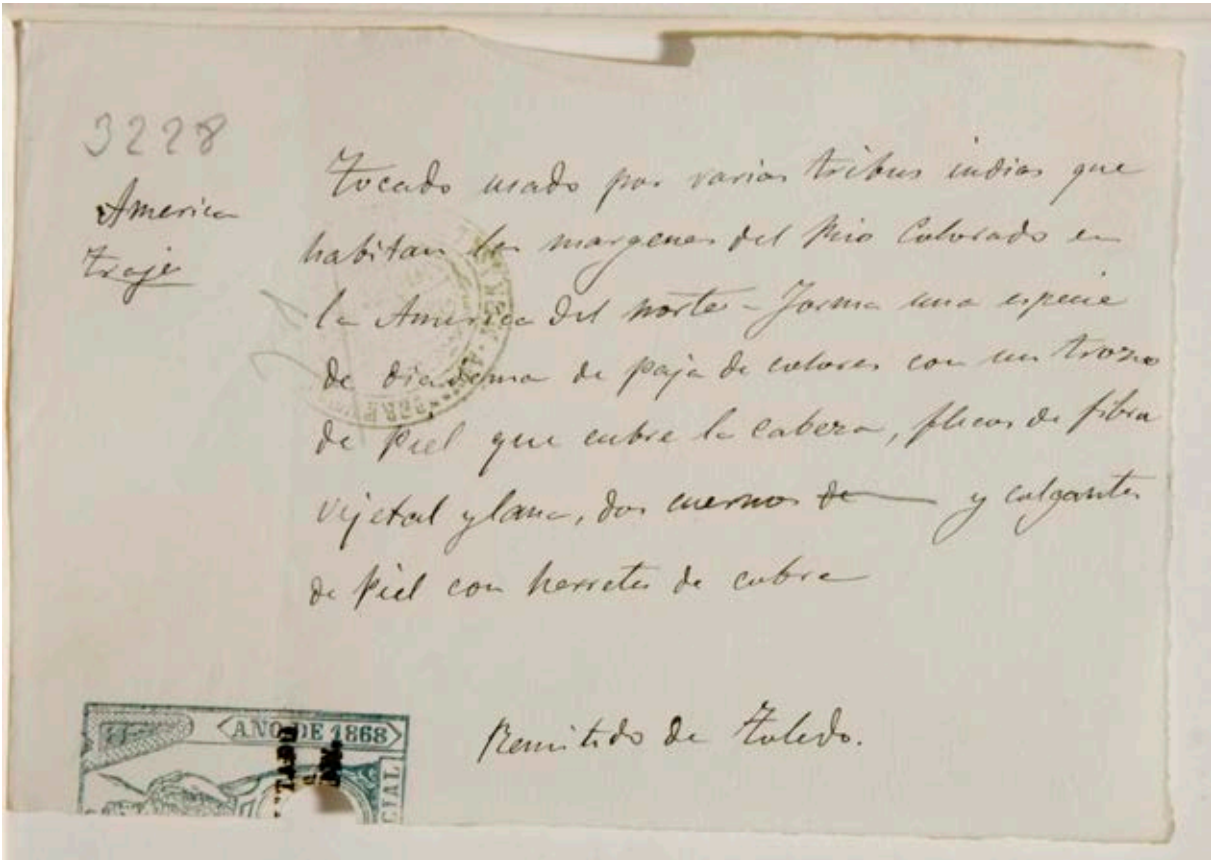 3228
America
Traje
Tocado usado por varias tribus indias que
habitan las margenes del Rio Colorado en
la America del norte - Forma una especie
de diadema de paja de colores con un trozo
de piel que cubre la cabeza, flecos de fibra
vejetal y lana, dos cuernos de y colgantes
de piel con herretes de cobre
Remitido de Toledo.
AÑO DE 1868
CIAL